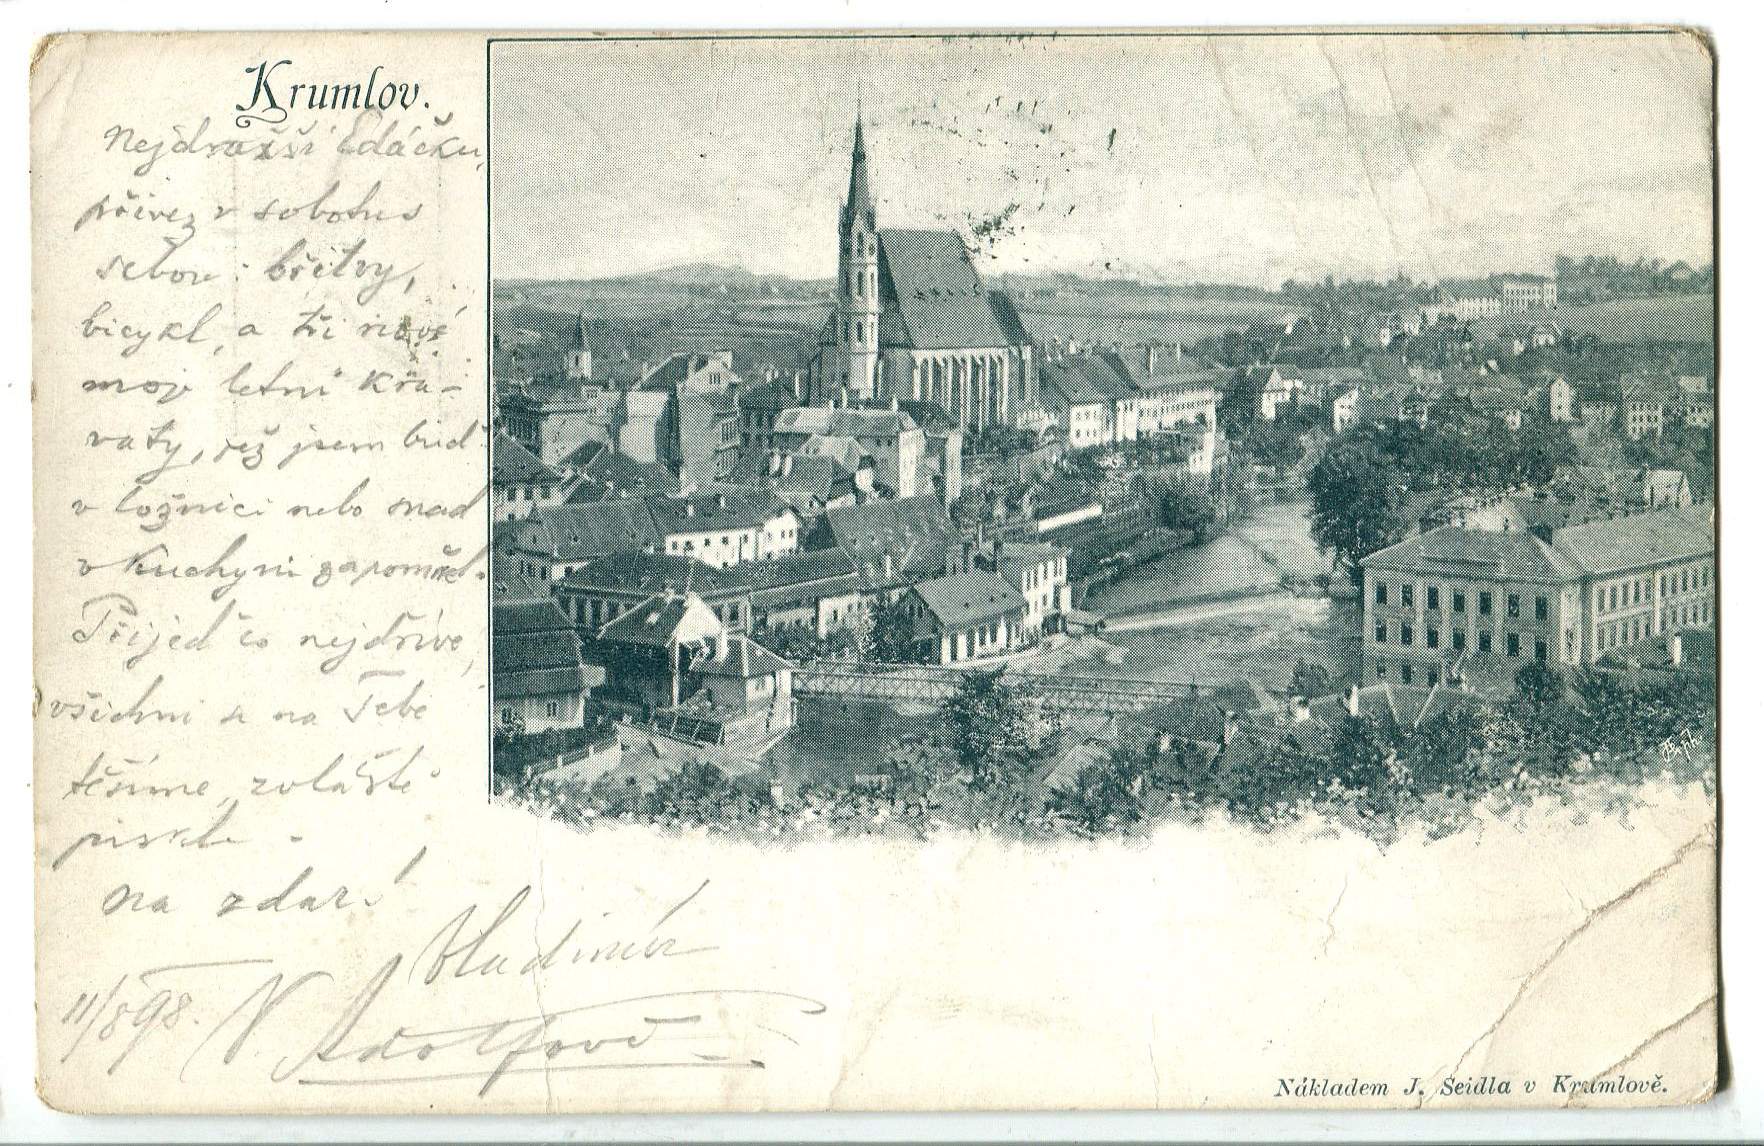 Krumlov.
Nejdražší Edáčku,
přivez v sobotu s
sebou: břitvy,
bicykl, a tři nové
moje letní kra-
vaty, jež jsem buď
v ložnici nebo snad
v kuchyni zapomněl.
Přijeď co nejdříve,
všichni se na Tebe
těšíme, zvláště
na zdar!
Vladimír
11/8 98. V Adolfově
Nákladem J. Seidla v Krumlově.